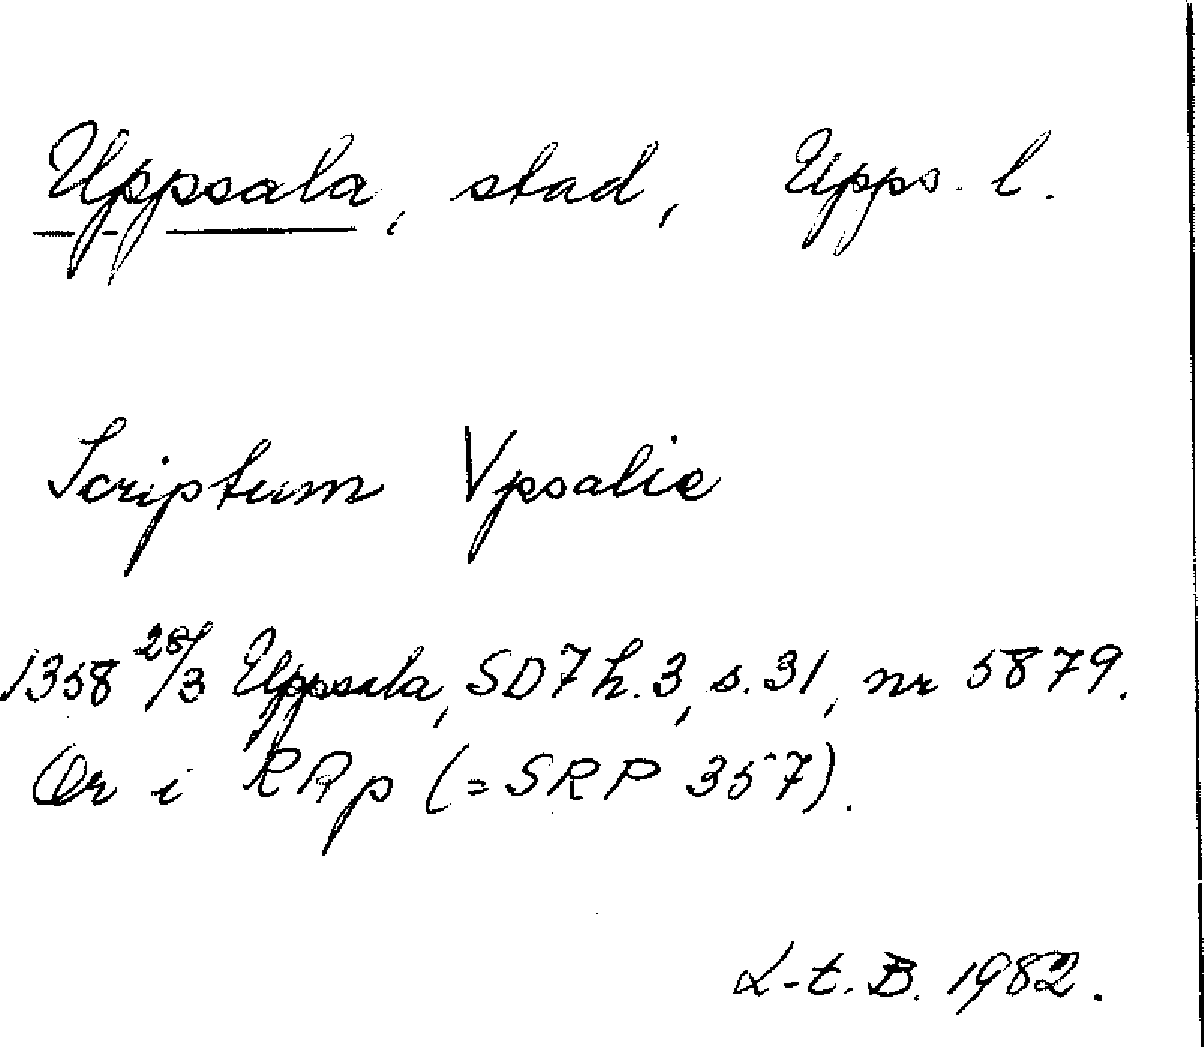 Uppsala, stad, Upps. l.
Scriptum Vpsalie
1358 28/3 Uppsala, SD7 h.3, s.31, nr 5879.
Or i RAp (=SRP 357).
L-t. B. 1982.